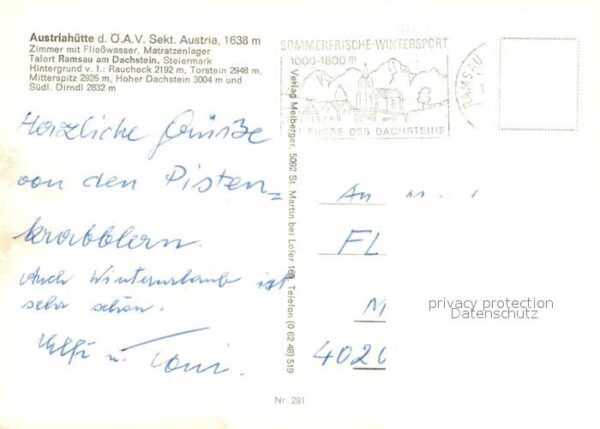 Austriahütte d. Ö.A.V. Sekt. Austria, 1638 m
Zimmer mit Fließwasser, Matratzenlager
Talort Ramsau am Dachstein, Steiermark
Hintergrund v. l.: Raucheck 2192 m, Torstein 2948 m,
Mitterspitz 2926 m, Hoher Dachstein 3004 m und
Südl. Dirndl 2832 m
Herzliche Grüße
von den Pisten=
krabblern.
Auch Winterurlaub ist
sehr schön.
u. Toni.
SOMMERFRISCHE-WINTERSPORT
1000-1800 m
FUSSE DES DACHSTEINS
RAMSAU
Verlag Melberger, 5092 St. Martin bei Lofer 169, Telefon (0 62 48) 519
An M
FL
M
4020
privacy protection
Datenschutz
Nr. 291